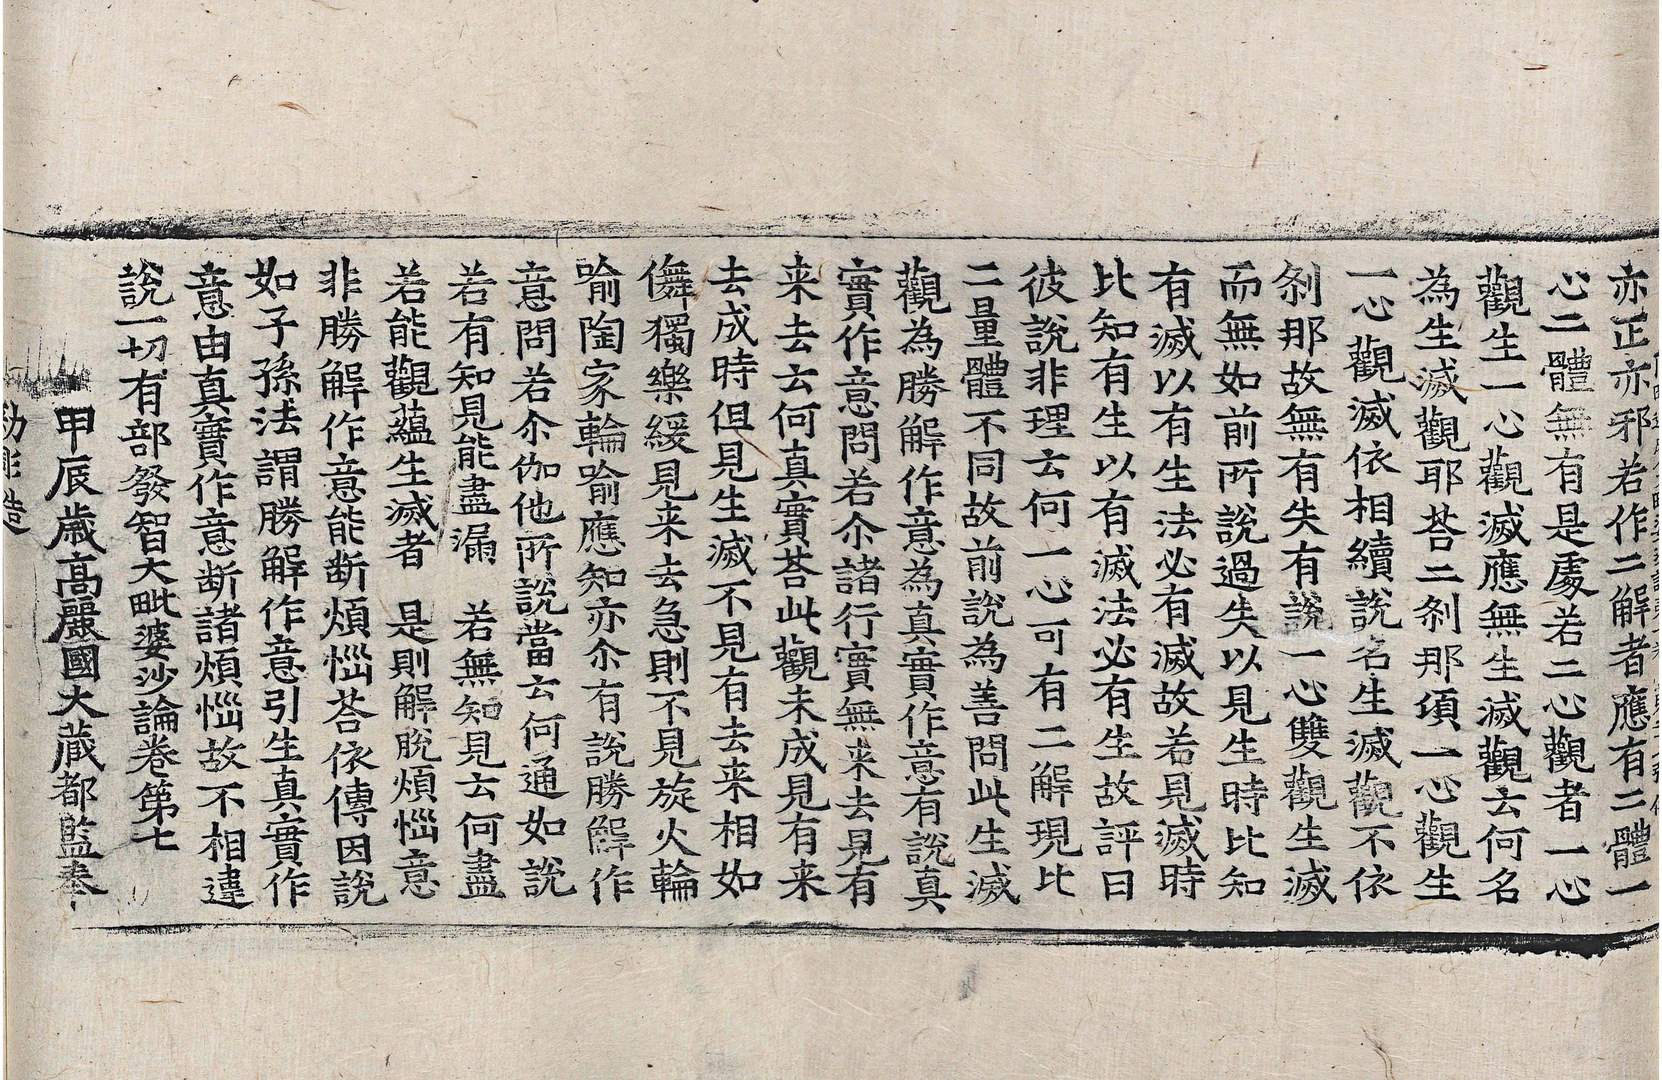 亦正亦邪若作二解者應有二體一
心二體無有是處若二心觀者一心
觀生一心觀滅應無生滅觀云何名
為生滅觀耶荅二刹那頃一心觀生
一心觀滅依相續說名生滅觀不依
刹那故無有失有說一心雙觀生滅
而無如前所說過失以見生時比知
有滅以有生法必有滅故若見滅時
比知有生以有滅法必有生故評曰
彼說非理云何一心可有二解現比
二量體不同故前說為善問此生滅
觀為勝解作意為真實作意有說真
實作意問若尒諸行實無来去見有
来去云何真實荅此觀未成見有来
去成時但見生滅不見有去来相如
儛獨樂緩見来去急則不見旋火輪
喻陶家輪喻應知亦尒有說勝解作
意問若尒伽他所說當云何通如說
若有知見能盡漏　若無知見云何盡
若能觀蘊生滅者　是則解脫煩惱意
非勝解作意能斷煩惱荅依傳因說
如子孫法謂勝解作意引生真實作
意由真實作意斷諸煩惱故不相違
說一切有部發智大毗婆沙論卷第七
甲辰歲高麗國大藏都監奉
勅彫造